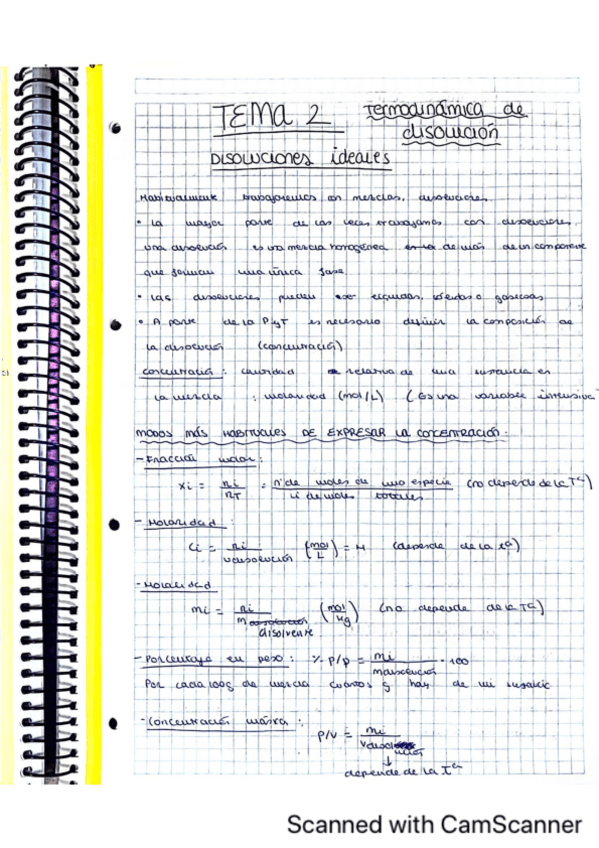 TEMA 2 Termodinámica de
disolución
DISOLUCIONES ideales
Habitualmente trabajaremos con mezclas, disoluciones
• La mayor parte de las veces trabajamos con disoluciones,
una disolución es una mezcla homogénea de más de un componente
que forman una única fase
• Las disoluciones pueden ser líquidas, sólidas o gaseosas
• A parte de la P y T es necesario definir la composición de
la disolución (concentración)
concentración: cantidad relativa de una sustancia en
la mezcla : molaridad (mol/L) (Es una variable intensiva"
MODOS MÁS HABITUALES DE EXPRESAR LA CONCENTRACIÓN:
- Fracción molar:
xi = ni / nT = nº de moles de una especie / moles totales (no depende de la Tª)
- Molaridad:
ci = ni / Vdisolución (mol/L) = M (depende de la tª)
- Molalidad
mi = ni / m disolvente (mol/kg) (no depende de la Tª)
- Porcentaje en peso: % p/p = mi / mdisolución · 100
Por cada 100g de mezcla cuántos g hay de mi
- Concentración másica:
p/v = mi / Vdisolución
↓
depende de la Tª
Scanned with CamScanner